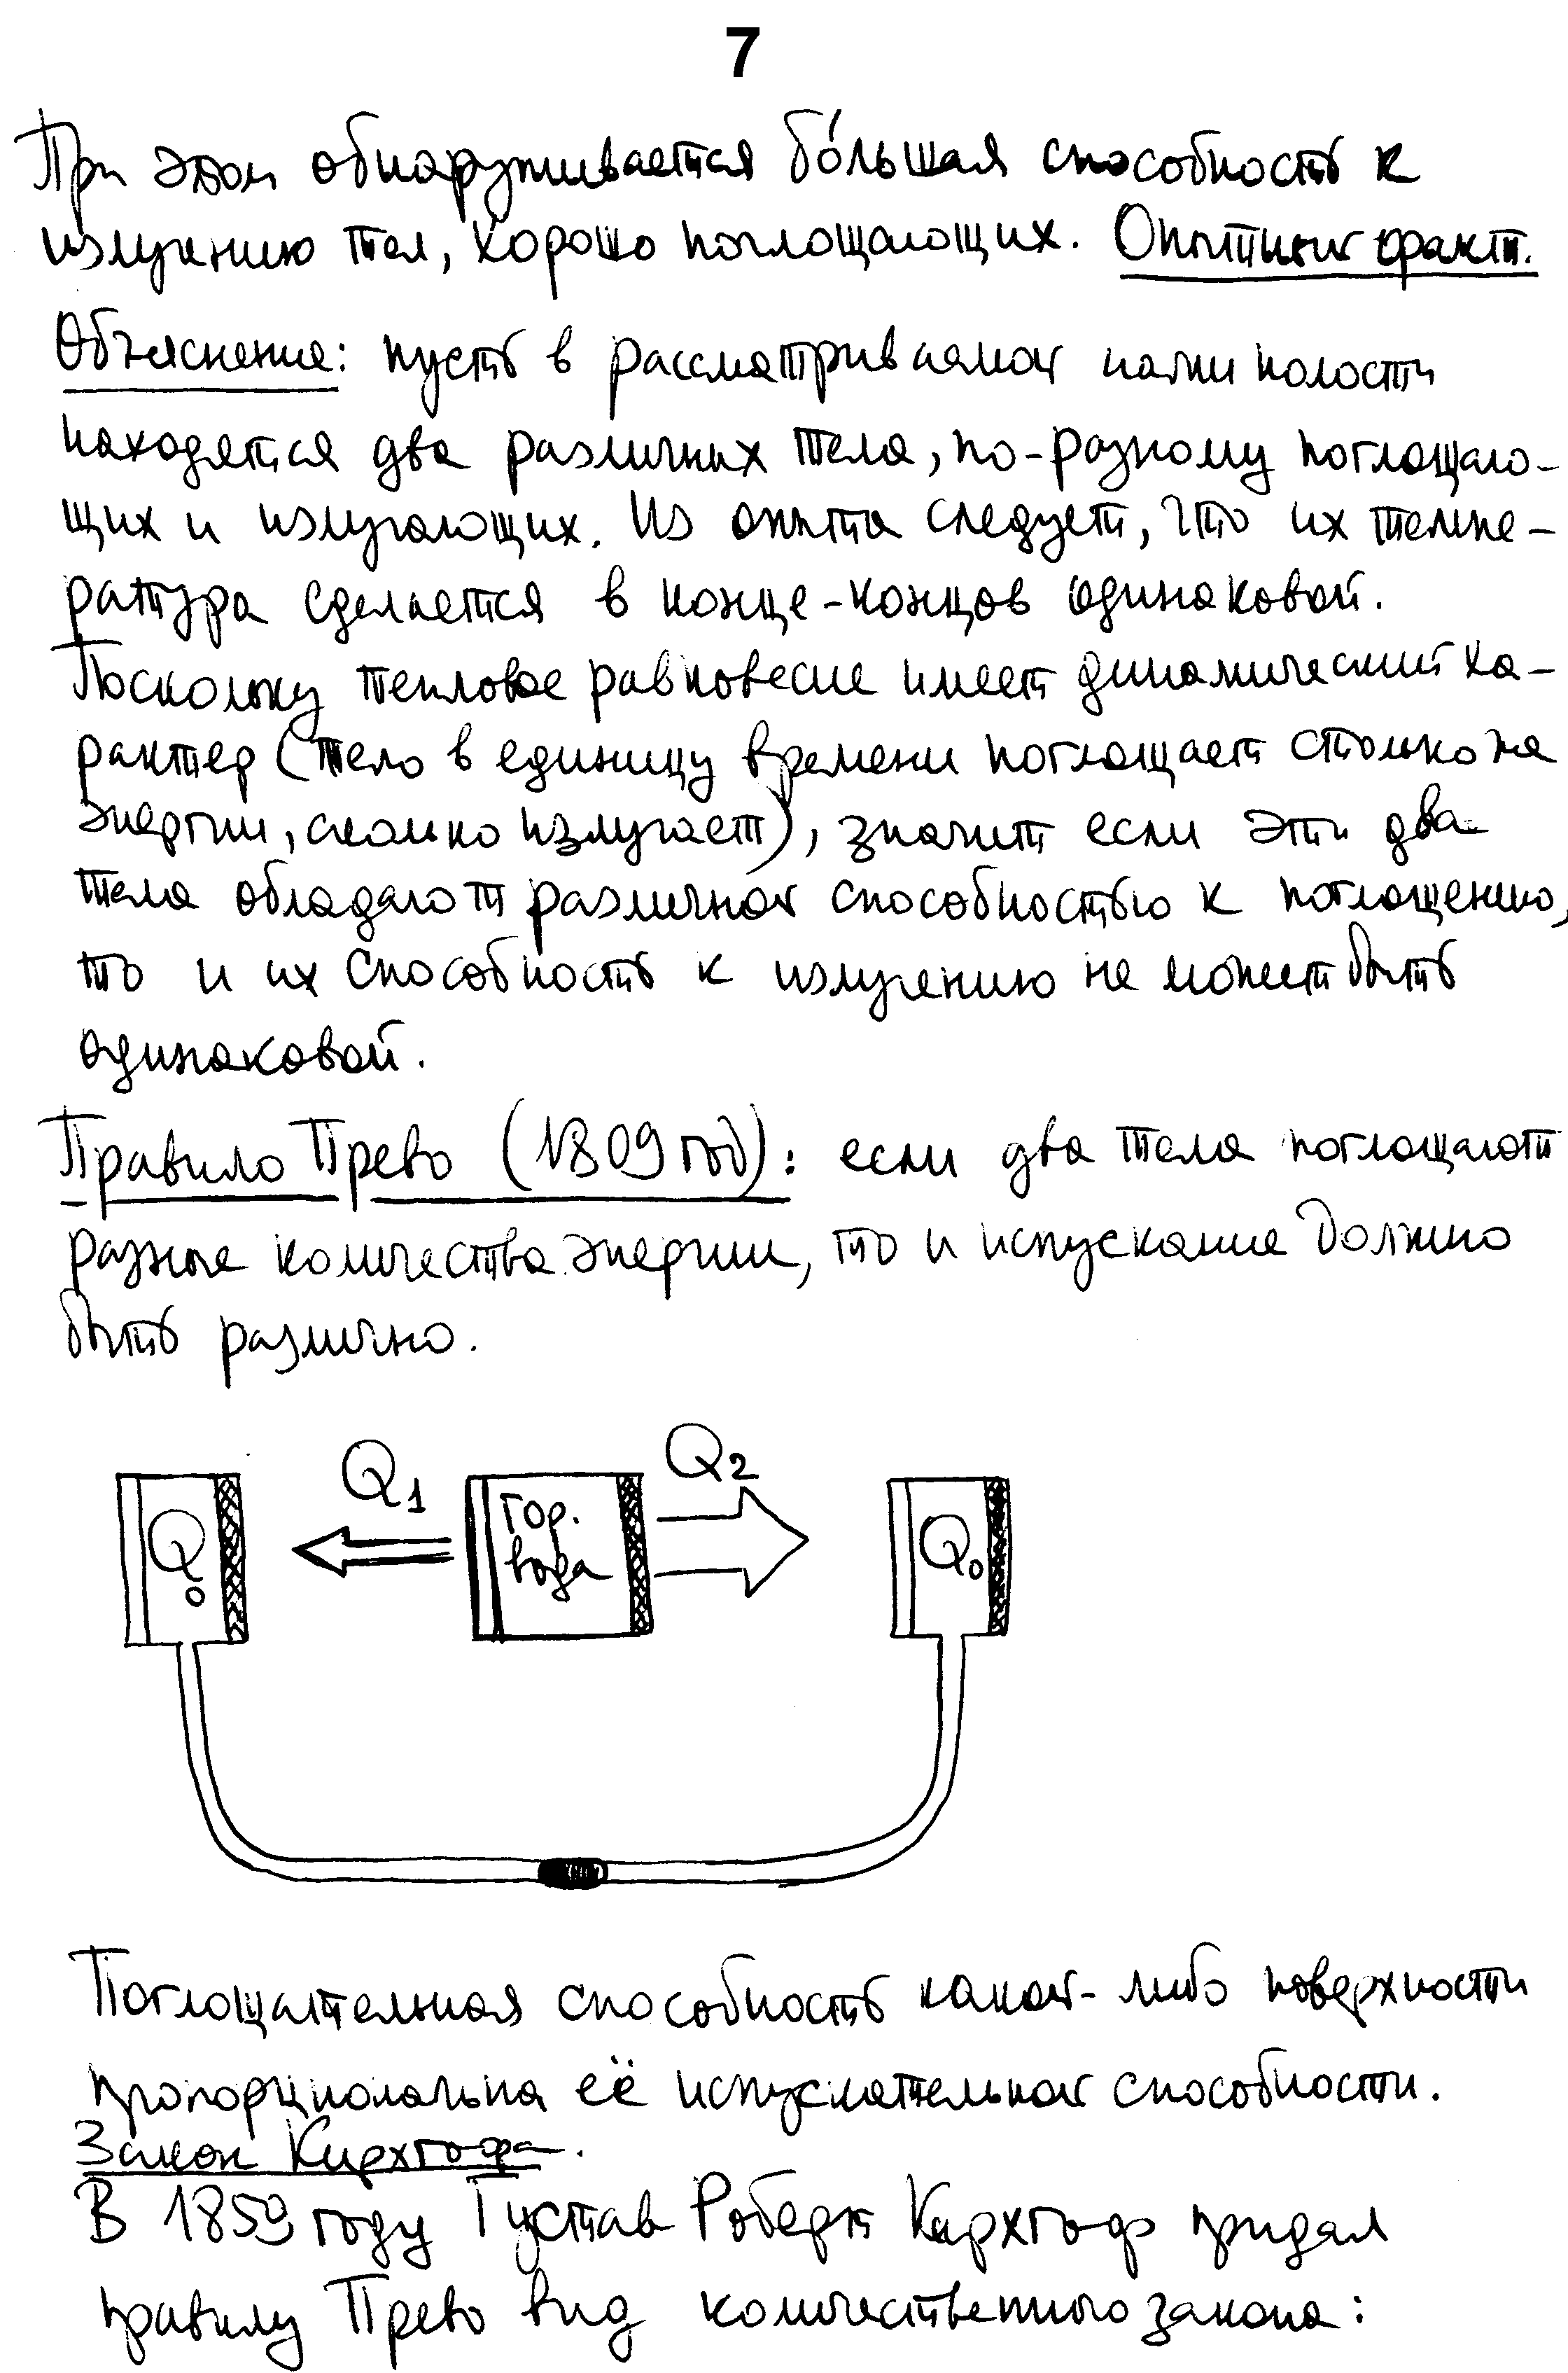 7
При этом обнаруживается бо́льшая способность к
излучению тел, хорошо поглощающих. Опытный факт.
Объяснение: пусть в рассматриваемой нами полости
находятся два различных тела, по-разному поглощаю-
щих и излучающих. Из опыта следует, что их темпе-
ратура сделается в конце-концов одинаковой.
Поскольку тепловое равновесие имеет динамический ха-
рактер (тело в единицу времени поглощает столько же
энергии, сколько излучает), значит если эти два
тела обладают различной способностью к поглощению,
то и их способность к излучению не может быть
одинаковой.
Правило Прево (1809 год): если два тела поглощают
разные количества энергии, то и испускание должно
быть различно.
Q₁ Q₂
Q₀ гор. Q₀
вода
Поглощательная способность какой-либо поверхности
пропорциональна её испускательной способности.
Закон Кирхгофа.
В 1859 году Густав Роберт Кирхгоф придал
правилу Прево вид количественного закона: